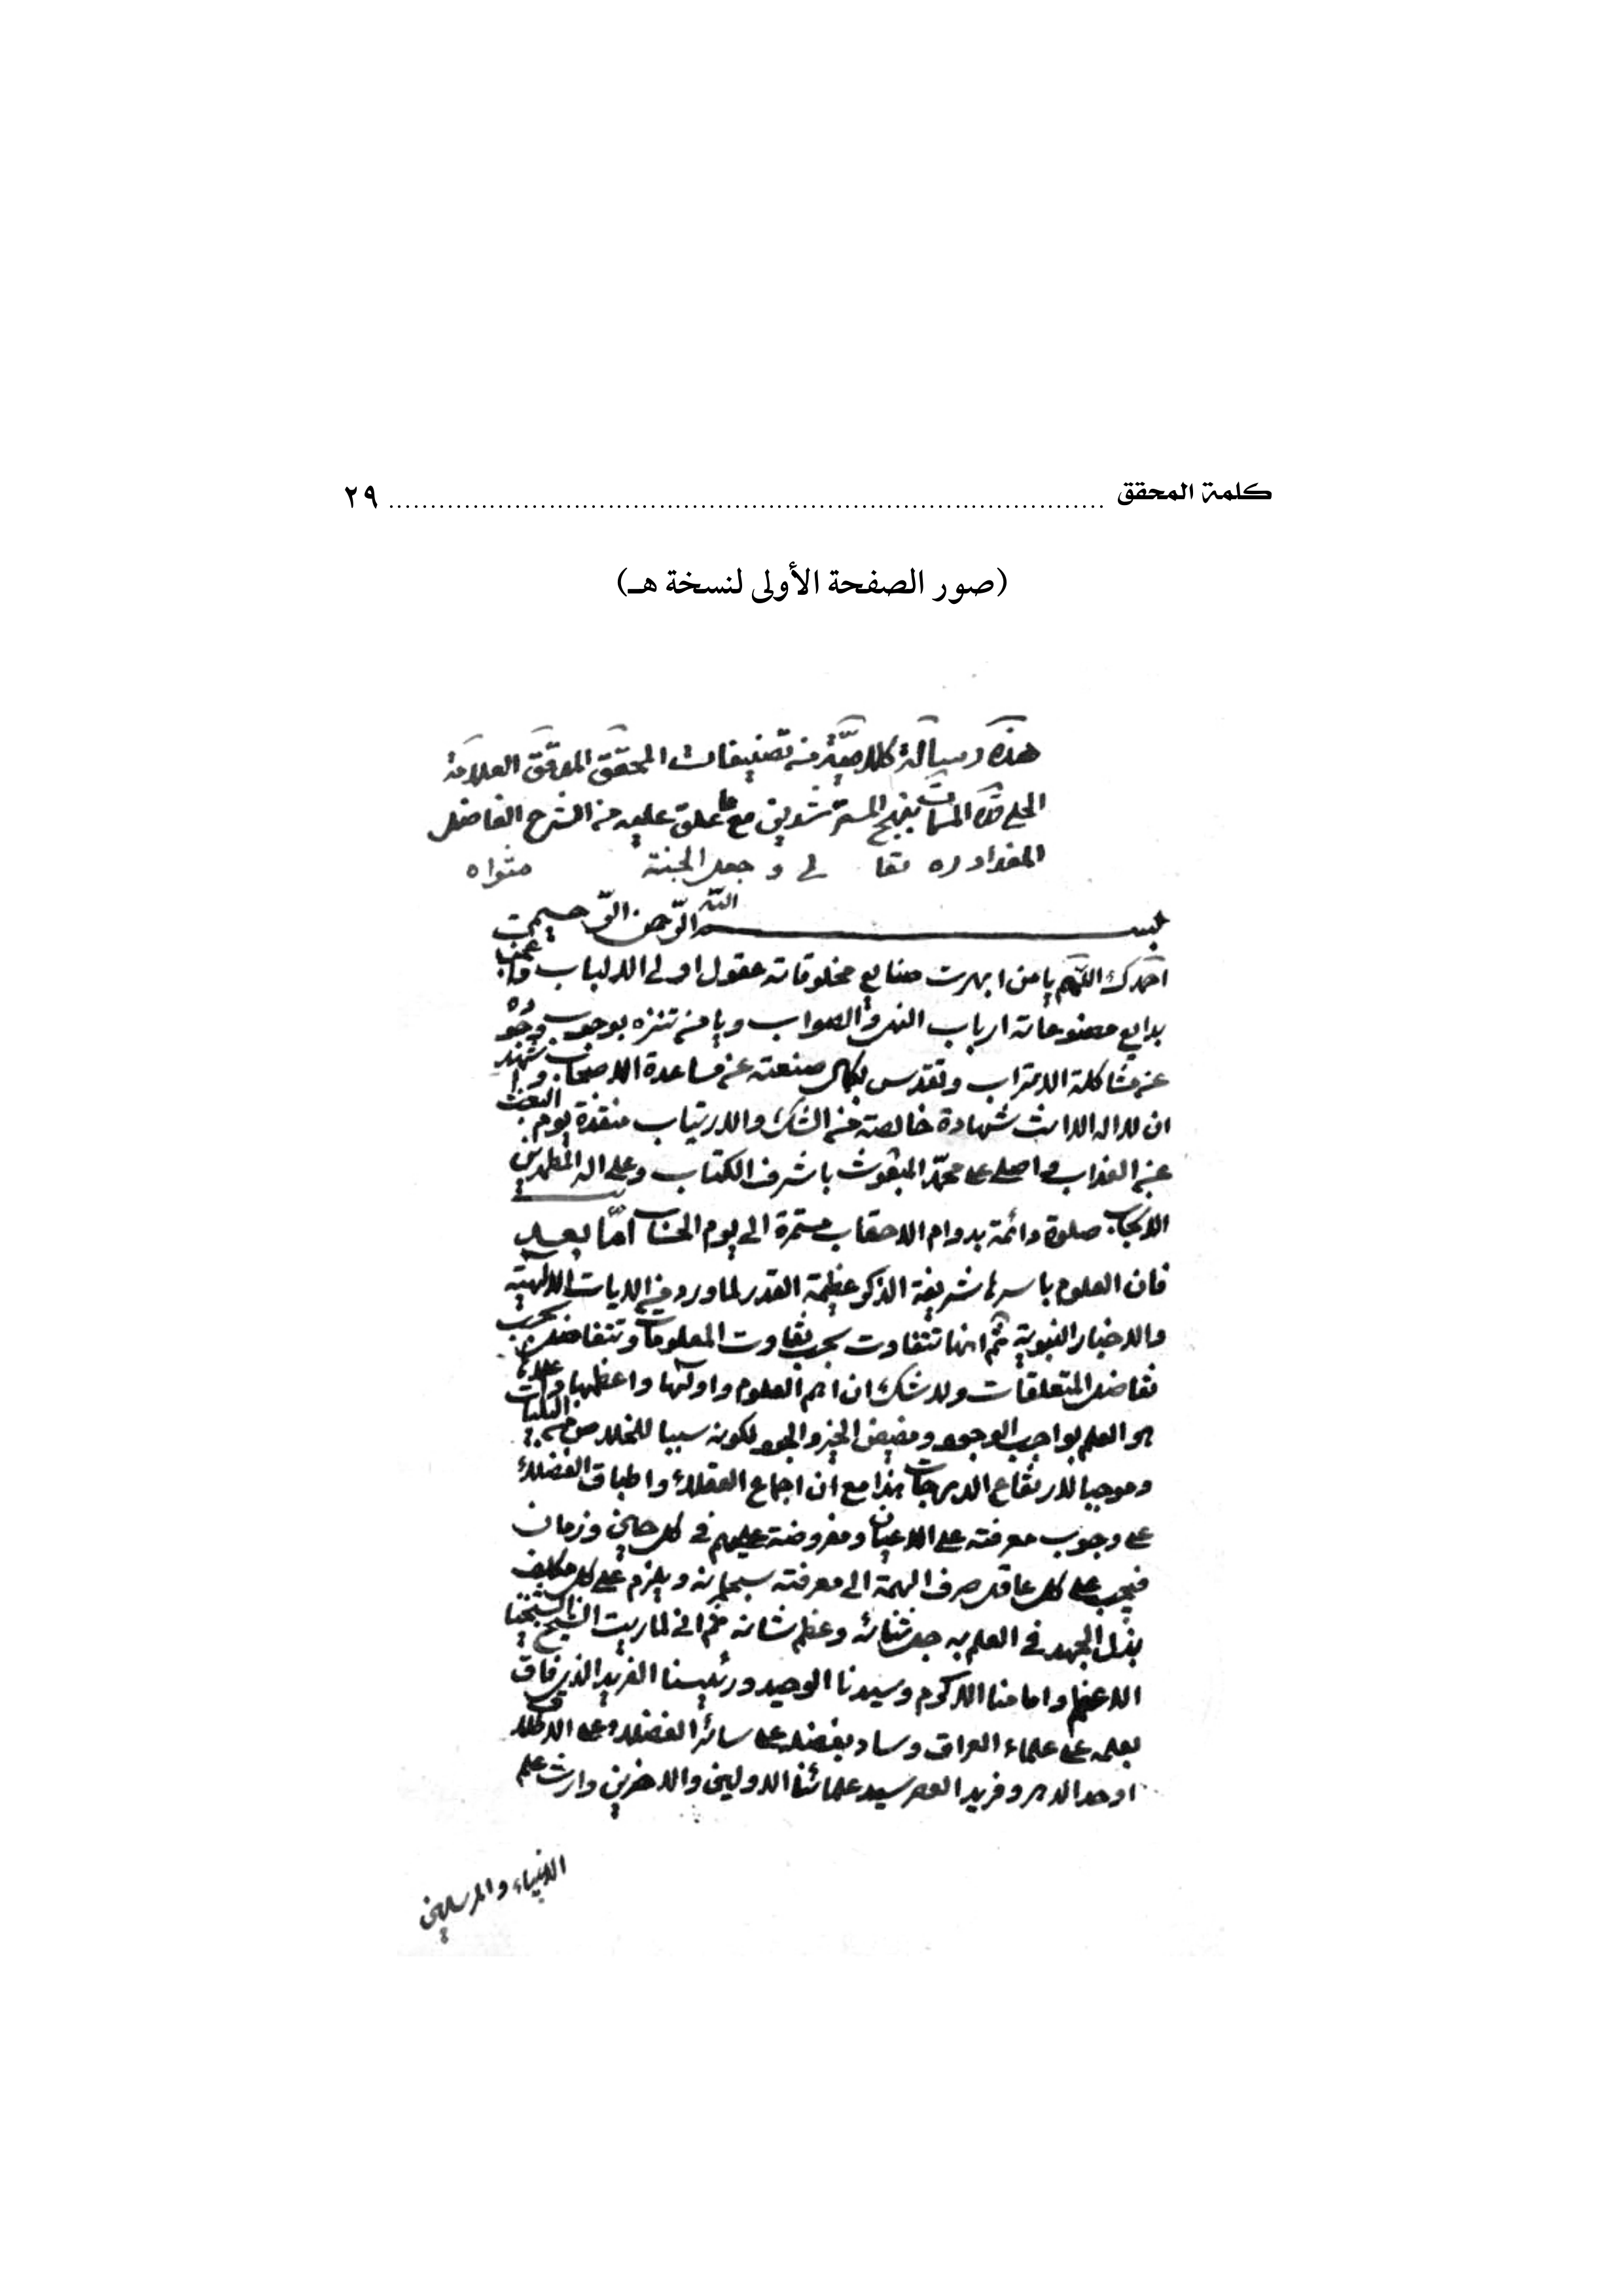 كلمة المحقق ........ ٢٩
(صور الصفحة الأولى لنسخة هـ)
هذه رسالة كلامية من تصنيفات المحقق المدقق العلامة
الحلي المسمات بنهج المسترشدين مع ما علق عليه من الشرح الفاضل
المقداد ره تعا لى و جعل الجنة مثواه
بسم الله الرحمن الرحيم
احمدك اللهم يا من ابهرت صنايع مخلوقاته عقول اولى الالباب و
بدايع مصنوعاته ارباب النهى والصواب ويا من تنزه بوجوب وجوده
عن مشاكلة الاتراب وتقدس بكمال صنعته عن مساعدة الاصحاب واشهد
ان لا اله الا انت شهادة خالصة من الشك والارتياب منقذة يوم البعث
عن العذاب واصلى على محمد المبعوث باشرف الكتاب وعلى اله المطهرين
الانجاب صلوة دائمة بدوام الاحقاب مستمرة الى يوم الحساب اما بعد
فان العلوم باسرها شريفة الذكر عظيمة القدر لما ورد في الايات الالهية
والاخبار النبوية ثم انها تتفاوت بحسب تفاوت المعلومات وتتفاضل بحسب
تفاضل المتعلقات ولا شك ان اهم العلوم واولها واعظمها
هو العلم بواجب الوجود ومفيض الخير والجود لكونه سببا للخلاص من البليات
وموجبا لارتفاع الدرجات هذا مع ان اجماع العقلاء واطباق الفضلاء
على وجوب معرفته على الاعيان ومفروضة عليهم في كل حين وزمان
فيجب على كل عاقل صرف الهمة الى معرفته سبحانه ويلزم على كل مكلف
بذل الجهد في العلم به جل ثنائه وعظم شانه ثم انى لما رايت الشيخ شيخنا
الاعظم وامامنا الاكرم وسيدنا الوحيد ورئيسنا الفريد الذي فاق
بعلمه على علماء العراق وساد بفضله على سائر الفضلاء على الاطلاق
اوحد الدهر وفريد العصر سيد علمائنا الاولين والاخرين وارث علم
الانبياء والمرسلين